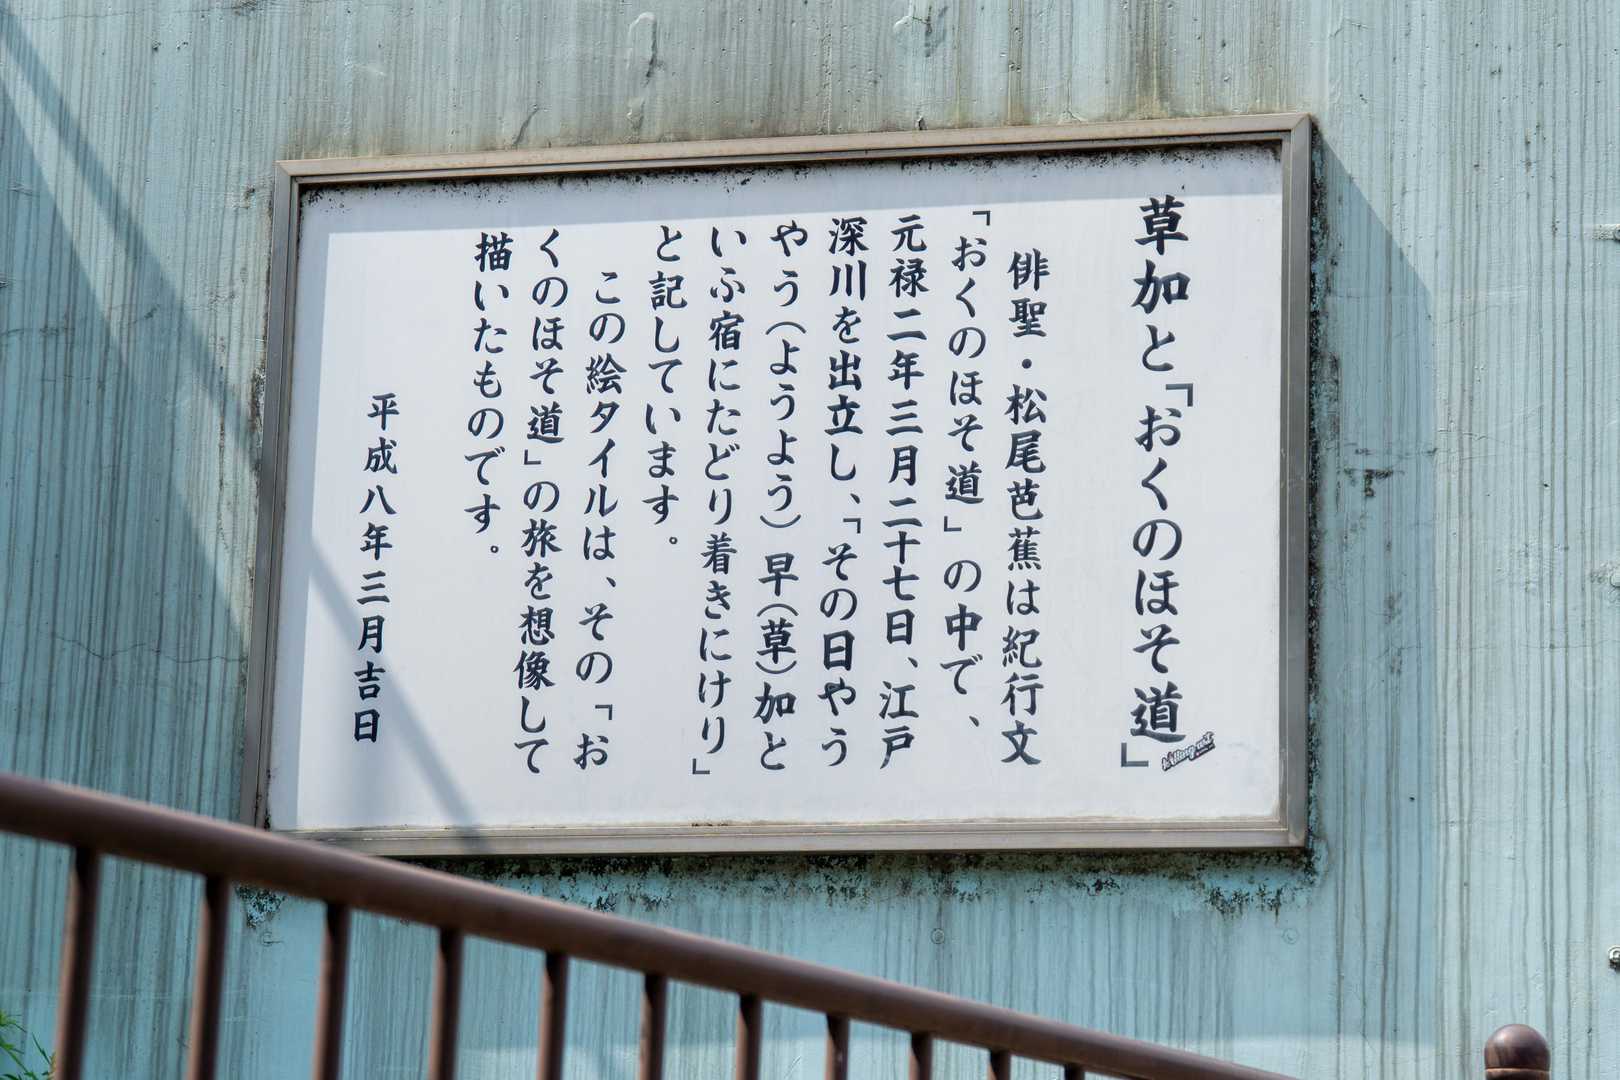 草加と「おくのほそ道」
俳聖・松尾芭蕉は紀行文
「おくのほそ道」の中で、
元禄二年三月二十七日、江戸
深川を出立し、「その日やう
やう(ようよう)早(草)加と
いふ宿にたどり着きにけり」
と記しています。
この絵タイルは、その「お
くのほそ道」の旅を想像して
描いたものです。
平成八年三月吉日